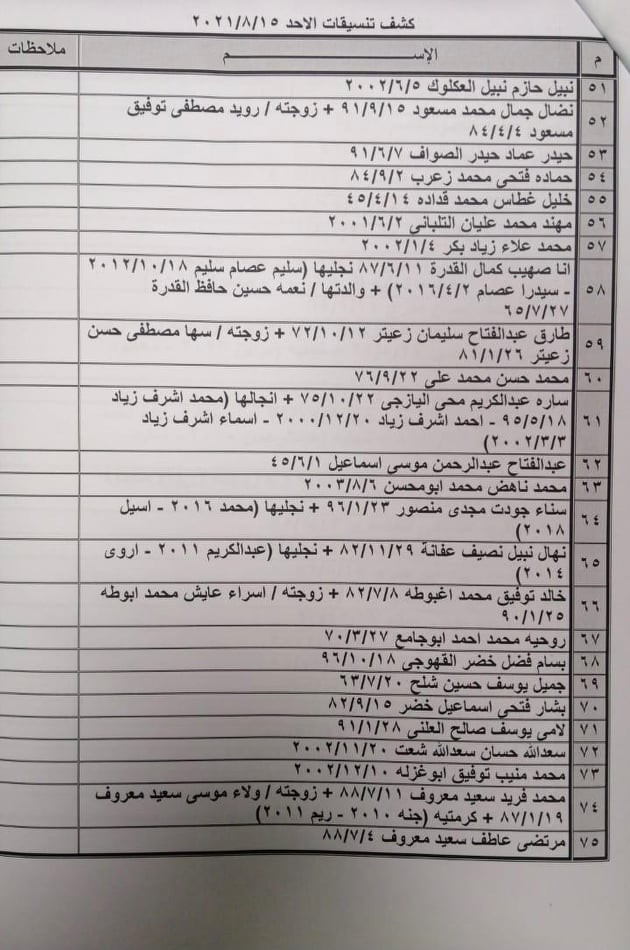 كشف تنسيقات الاحد ٢٠٢١/٨/١٥
م الإســـــم ملاحظات
٥١ نبيل حازم نبيل العكلوك ٢٠٠٢/٦/٥
٥٢ نضال جمال محمد مسعود ٩١/٩/١٥ + زوجته / رويد مصطفى توفيق
مسعود ٨٤/٤/٤
٥٣ حيدر عماد حيدر الصواف ٩١/٦/٧
٥٤ حماده فتحي محمد زعرب ٨٤/٩/٢
٥٥ خليل غطاس محمد قداده ٤٥/٤/١٤
٥٦ مهند محمد عليان التلباني ٢٠٠١/٦/٢
٥٧ محمد علاء زياد بكر ٢٠٠٢/١/٤
٥٨ انا صهيب كمال القدرة ٨٧/٦/١١ نجليها (سليم عصام سليم ٢٠١٢/١٠/١٨
- سيدرا عصام ٢٠١٦/٤/٢) + والدتها / نعمه حسين حافظ القدرة
٦٥/٧/٢٧
٥٩ طارق عبدالفتاح سليمان زعيتر ٧٢/١٠/١٢ + زوجته / سها مصطفى حسن
زعيتر ٨١/١/٢٦
٦٠ محمد حسن محمد علي ٧٦/٩/٢٢
٦١ ساره عبدالكريم محي اليازجي ٧٥/١٠/٢٢ + انجالها (محمد اشرف زياد
٩٥/٥/١٨ - احمد اشرف زياد ٢٠٠٠/١٢/٢٠ - اسماء اشرف زياد
٢٠٠٢/٣/٣)
٦٢ عبدالفتاح عبدالرحمن موسى اسماعيل ٤٥/٦/١
٦٣ محمد ناهض محمد ابومحسن ٢٠٠٣/٨/٦
٦٤ سناء جودت مجدي منصور ٩٦/١/٢٣ + نجليها (محمد ٢٠١٦ - اسيل
٢٠١٨)
٦٥ نهال نبيل نصيف عفانة ٨٢/١١/٢٩ + نجليها (عبدالكريم ٢٠١١ - اروى
٢٠١٤)
٦٦ خالد توفيق محمد اغبوطه ٨٢/٧/٨ + زوجته / اسراء عايش محمد ابوطه
٩٠/١/٢٥
٦٧ روحيه محمد احمد ابوجامع ٧٠/٣/٢٧
٦٨ بسام فضل خضر القهوجي ٩٦/١٠/١٨
٦٩ جميل يوسف حسين شلح ٦٣/٧/٢٠
٧٠ بشار فتحي اسماعيل خضر ٨٢/٩/١٥
٧١ لامي يوسف صالح العلني ٩١/١/٢٨
٧٢ سعدالله حسان سعدالله شعت ٢٠٠٢/١١/٢٠
٧٣ محمد منيب توفيق ابوغزله ٢٠٠٢/١٢/١٠
٧٤ محمد فريد سعيد معروف ٨٨/٧/١١ + زوجته / ولاء موسى سعيد معروف
٨٧/١/١٩ + كرمتيه (جنه ٢٠١٠ - ريم ٢٠١١)
٧٥ مرتضى عاطف سعيد معروف ٨٨/٧/٤